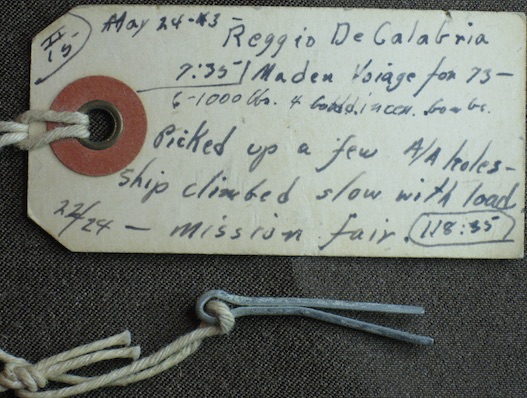 II
15
May 24-43 -
Reggio De Calabria
7:35 Maden Voiage for 73 -
6-1000 lbs. 4 incen. bombs.
Picked up a few A/A holes -
ship climbed slow with load
22/24 - mission fair. 118:35